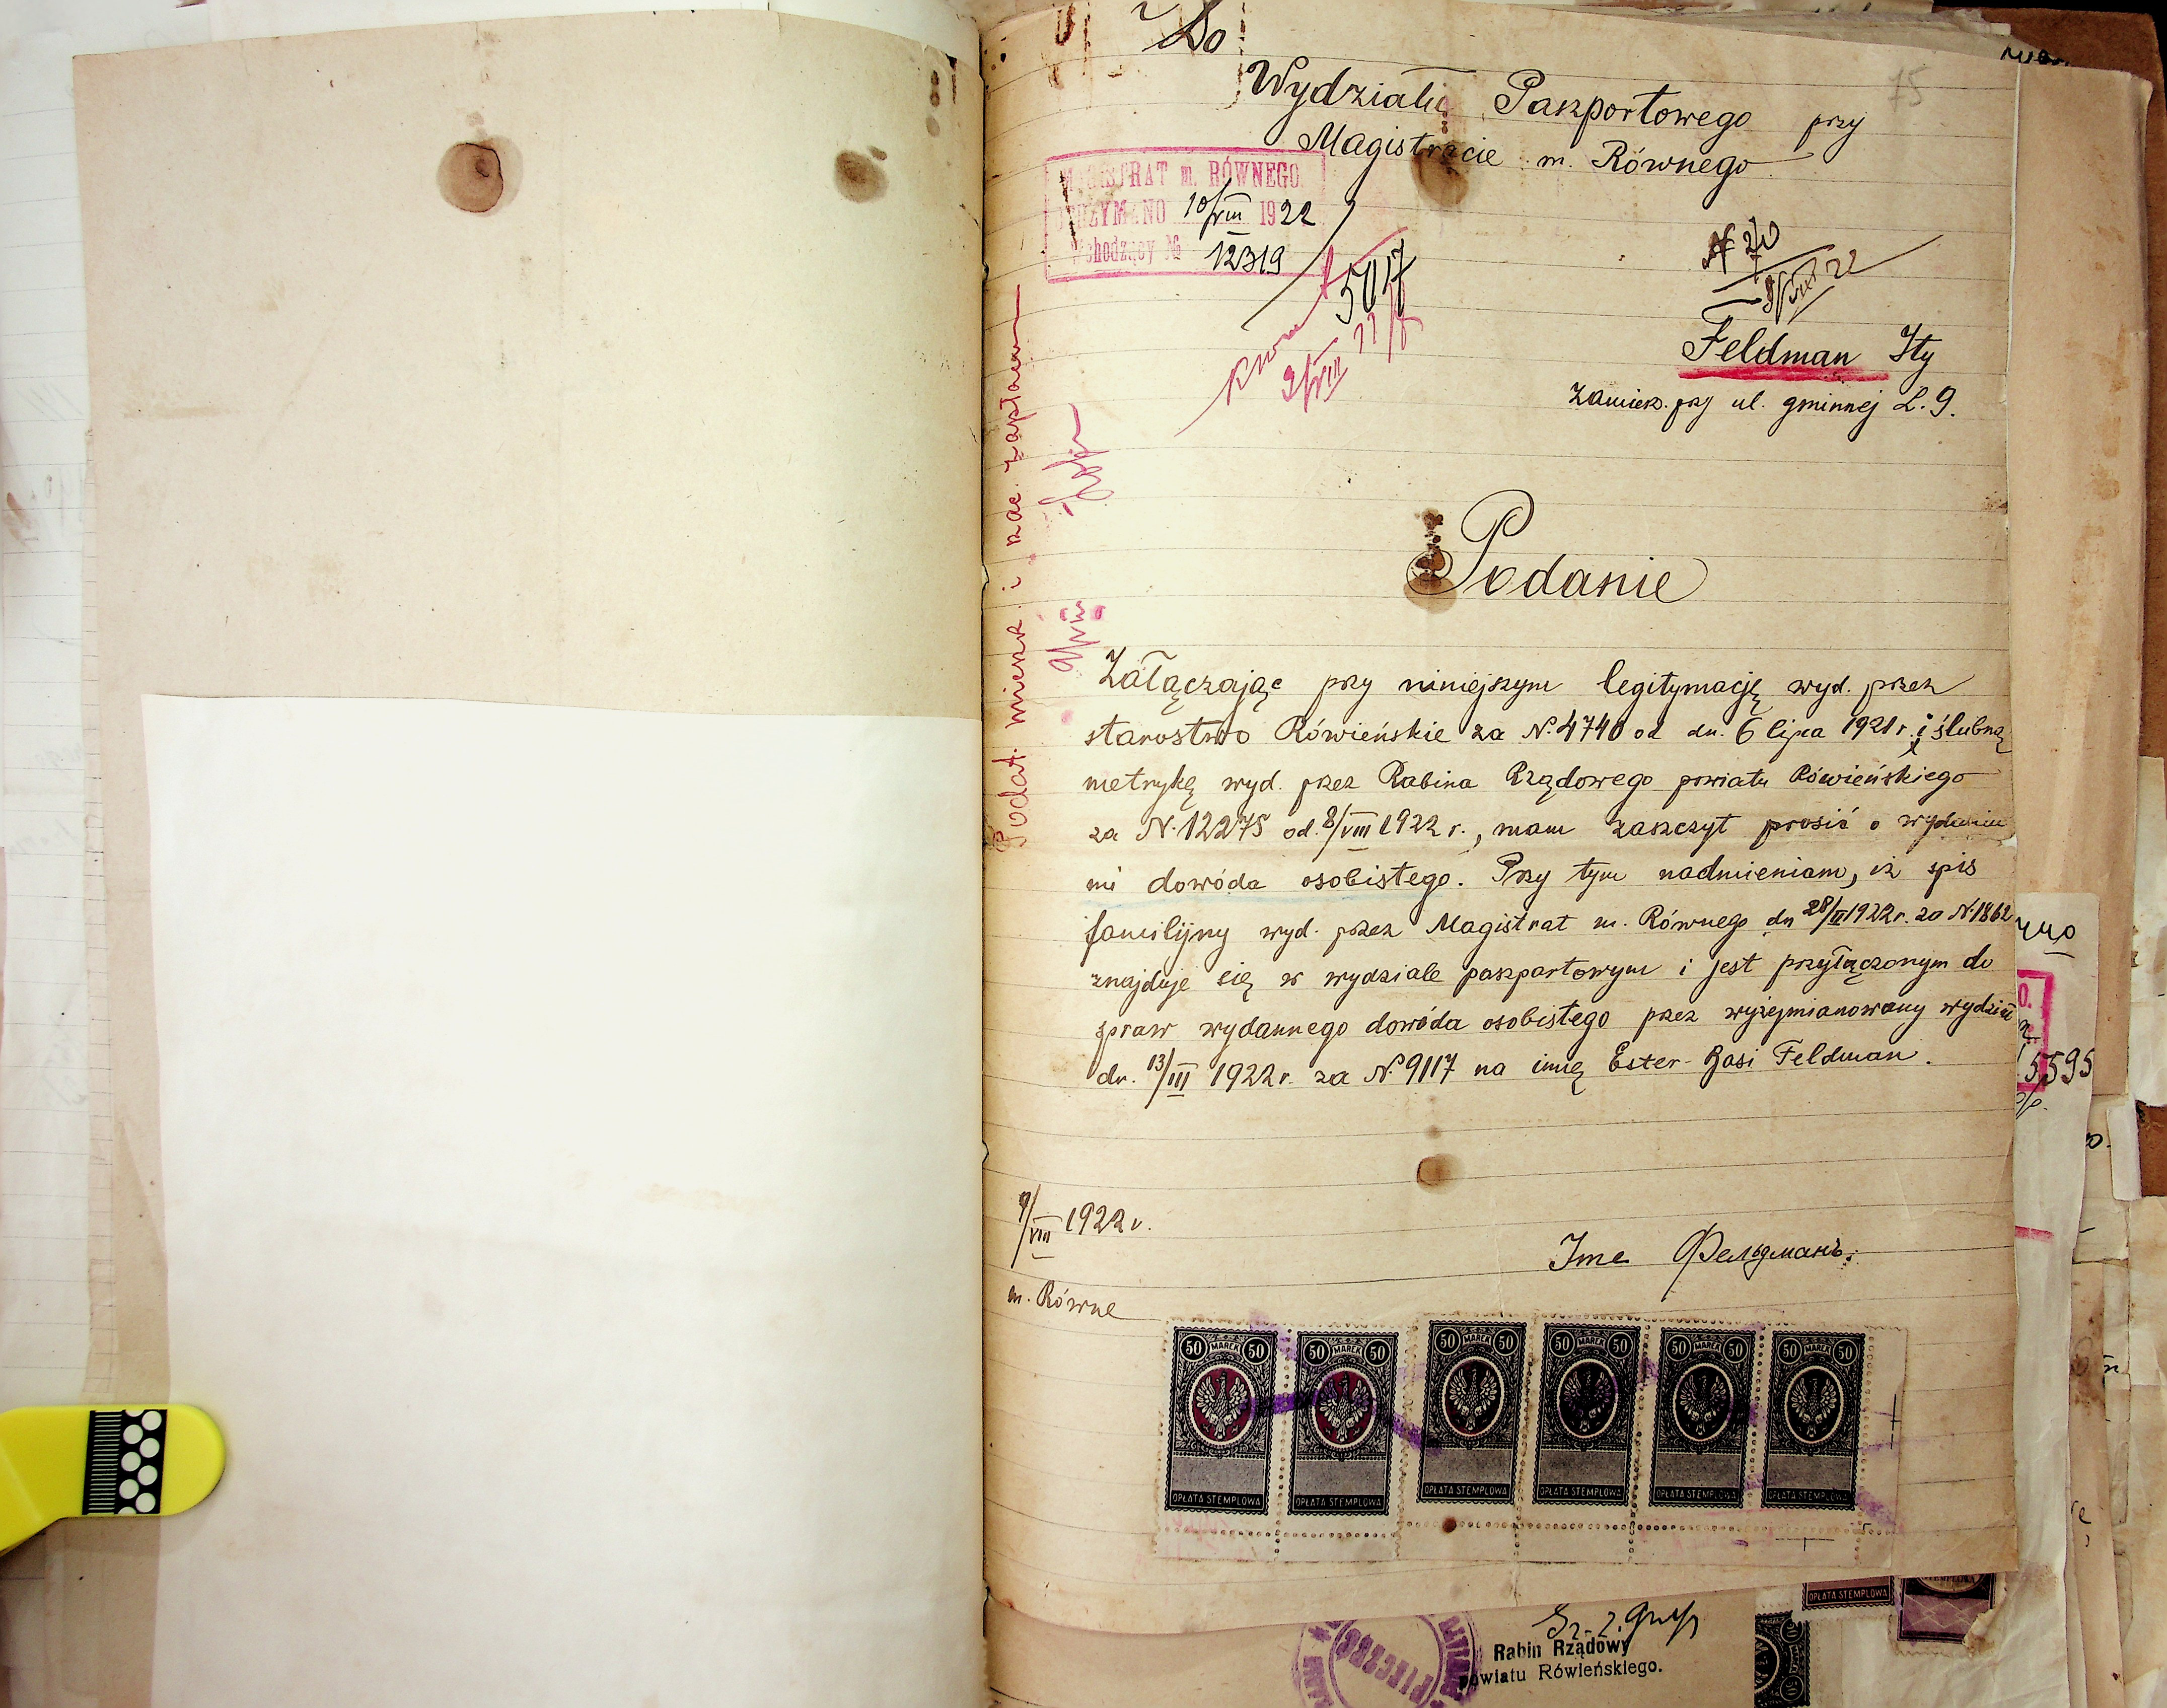 Do
Wydziału Paszportowego przy
Magistracie m. Równego
75
MAGISTRAT m. RÓWNEGO
OTRZYMANO 10/VIII 1922
Wchodzący № 12319
5017
9/VIII
Feldman Ity
zamiesz. przy ul. gminnej L. 9.
Podat. mieszk. i
Podanie
Załączając przy niniejszym legitymację wyd. przez
starostwo Rówieńskie za N. 4740 od dn. 6 lipca 1921 r. i ślubną
metrykę wyd. przez Rabina Rządowego powiatu Rówieńskiego
za N. 12275 od. 8/VIII 1922 r., mam zaszczyt prosić o wydanie
mi dowóda osobistego. Przy tym nadmieniam, iż spis
familijny wyd. przez Magistrat m. Równego dn 28/II 1922 r. za N. 1862
znajduje się w wydziale paszportowym i jest przyłączonym do
spraw wydannego dowóda osobistego przez wyżejmianowany wydział
dn. 13/III 1922 r. za N. 9117 na imię Ester-Basi Feldman.
9/VIII 1922 r.
Ита Фельдманъ.
m. Równe
50 MAREK 50
50 MAREK 50
50 MAREK 50
50 MAREK 50
50 MAREK 50
50 MAREK 50
OPŁATA STEMPLOWA
OPŁATA STEMPLOWA
OPŁATA STEMPLOWA
OPŁATA STEMPLOWA
OPŁATA STEMPLOWA
OPŁATA STEMPLOWA
5595
OPŁATA STEMPLOWA
Rabin Rządowy
powiatu Rówieńskiego.